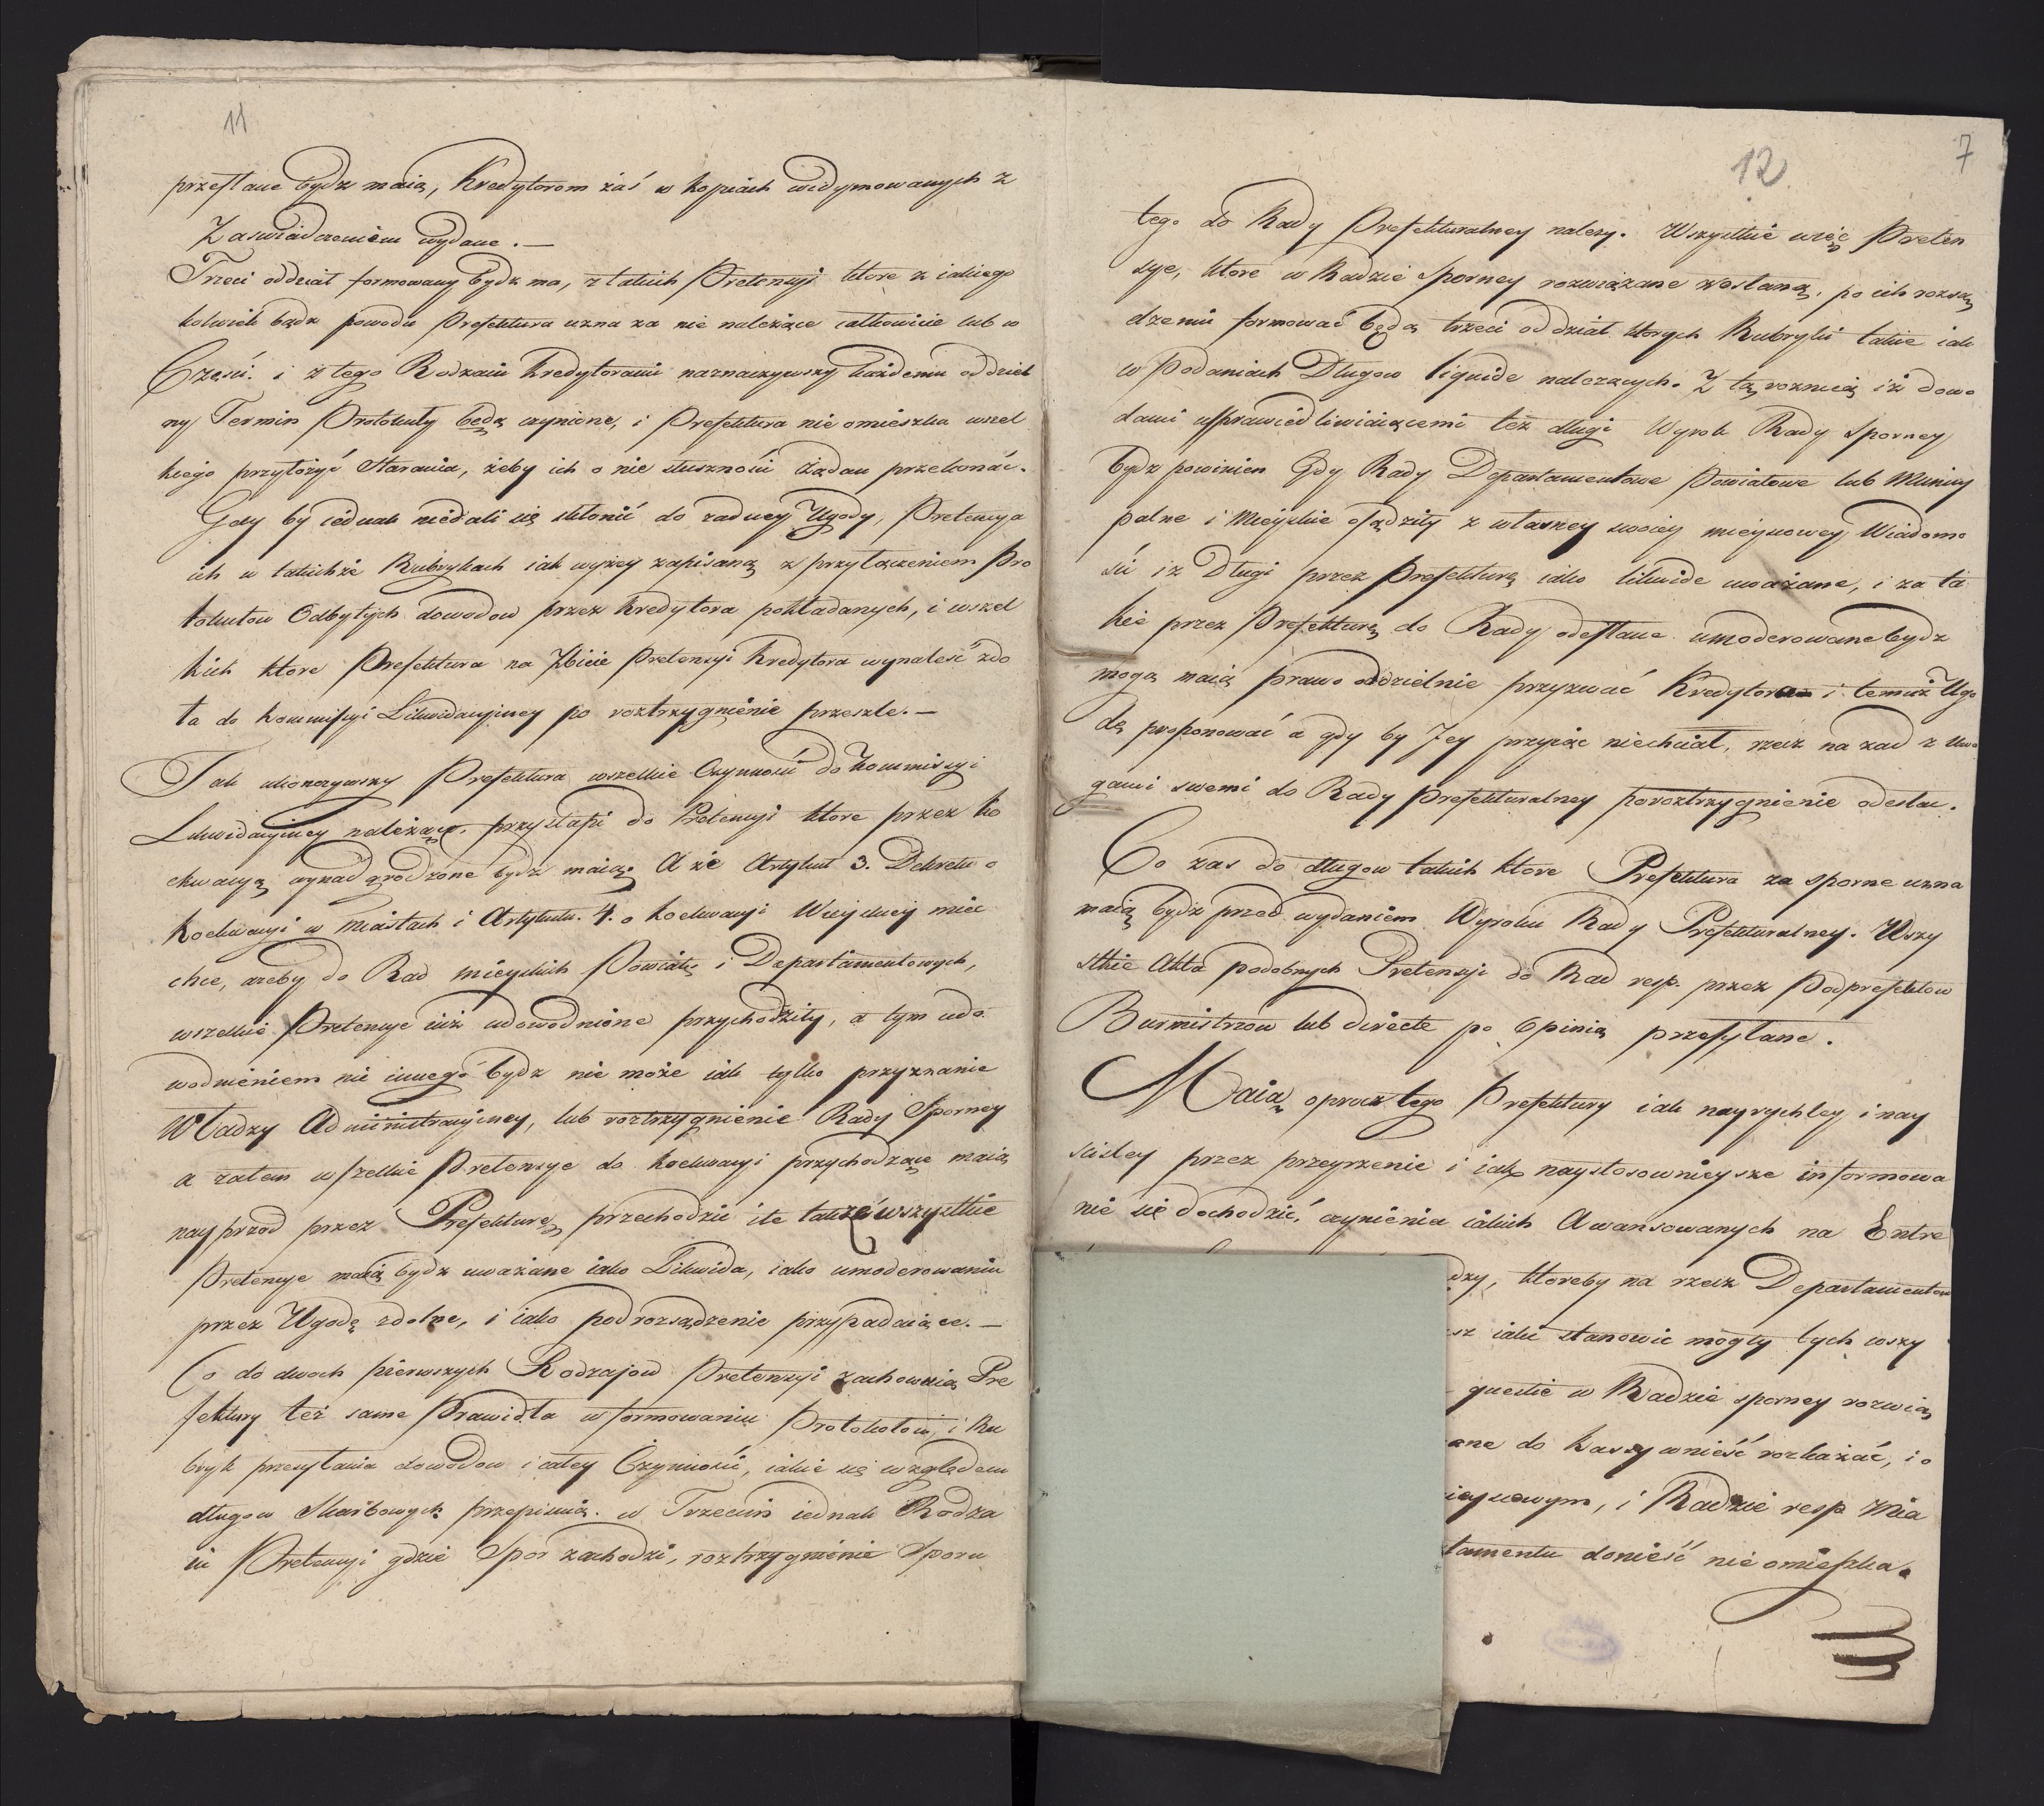 11
przesłane bydz maią, Kredytorom zaś w kopiach widymowanych z
Zaswiadczeniem wydane. —
Trzeci oddział formowany bydz ma, z takich Pretensyi ktore z iakiego
kolwiek bądz powodu Prefektura uzna za nie należące całkowicie lub w
Części. i z tego Rodzaiu Kredytorami naznaczywszy każdemu oddziel
ny Termin Protokuły będą czynione, i Prefektura nie omieszka wszel
kiego przyłożyć starania, żeby ich o nie słuszności żądań przekonać.
Gdy by iednak niedali się skłonić do żadney Ugody, Pretensya
ich w takichże Rubrykach iak wyżey zapisaną z przyłączeniem Pro
tokułow Odbytych dowodow przez Kredytora pokładanych, i wszel
kich ktore Prefektura na Zbicie Pretensyi Kredytora wynaleść zdo
ła do Kommissyi Likwidacyiney po roztrzygnienie przeszle. —
Tak ukonczywszy Prefektura wszelkie Czynności do Kommissyi
Likwidacyiney należące. przystąpi do Pretensyi ktore przez Ko
ekwacyą wynadgrodzone bydz maią. A że Artykuł 3. Dekretu o
Koekwacyi w Miastach i Artykułu. 4. o Koekwacyi Wieyskiey miec
chce, azeby do Rad mieyskich Powiatu i Departamentowych,
wszelkie Pretensye iuż udowodnione przychodziły, a tym udo
wodnieniem nic innego bydz nie może iak tylko przyznanie
Władzy Administracyiney, lub roztrzygnienie Rady Sporney
a zatem wszelkie Pretensye do Koekwacyi przychodzące maią
nayprzod przez Prefekturę przechodzić ile także wszystkie
Pretensye maią bydz uważane iako Likwida, iako umoderowaniu
przez Ugodę zdolne, i iako pod rozsądzenie przypadaiące. —
Co do dwoch pierwszych Rodzajow Pretensyi zachowaią Pre
fektury też same Prawidła w formowaniu Protokołow, i Ru
bryk przesyłania dowodow i całey Czynności, iakie się względem
długow Skarbowych przepisuią. w Trzecim iednak Rodza
iu Pretensyi gdzie Spor zachodzi, roztrzygnienie Sporu
12
7
tego do Rady Prefekturalney nalezy. Wszystkie więc Preten
sye, ktore w Radzie Sporney rozwiązane zostaną, po ich rozsą
dzeniu formować będą trzeci oddział ktorych Rubryki takie iak
w Podaniach Długow liquide nalezących. Z tą roznicą iż dowo
dami usprawiedliwiaiącemi też długi Wyrok Rady Sporney
bydz powinien Gdy Rady Departamentowe Powiatowe lub Municy
palne i Mieyskie osądziły z własney swoiey mieyscowey Wiadomo
ści iz Długi przez Prefekturę iako likwide uważane, i za ta
kie przez Prefekturę do Rady odesłane umoderowane bydz
mogą maią prawo oddzielnie przyzwać Kredytora i temuż Ugo
dę proponować a gdy by Jey przyiąc niechciał, rzecz na zad z uwa
gami swemi do Rady Prefekturalney po roztrzygnienie odeslac.
Co zas do długow takich ktore Prefektura za sporne uzna
maią bydz przed wydaniem Wyroku Rady Prefekturalney. Wszy
stkie Akta podobnych Pretensyi do Rad resp. przez Podprefektow
Burmistrzow lub directe po Opinią przesyłane.
Maią oprocz tego Prefektury iak nayrychley i nay
scisley przez przeyrzenie i iak naystosownieysze informowa
nie się dochodzić, czynienia iakich Awansowanych na Entre
dzy, ktoreby na rzecz Departamentow
sz iaki stanowic mogły tych wszy
questie w Radzie sporney rozwią
ane do kassy wnieść rozkażać, i o
ieyscowym, i Radzie resp. Mia
tamentu donieść nie omieszka.